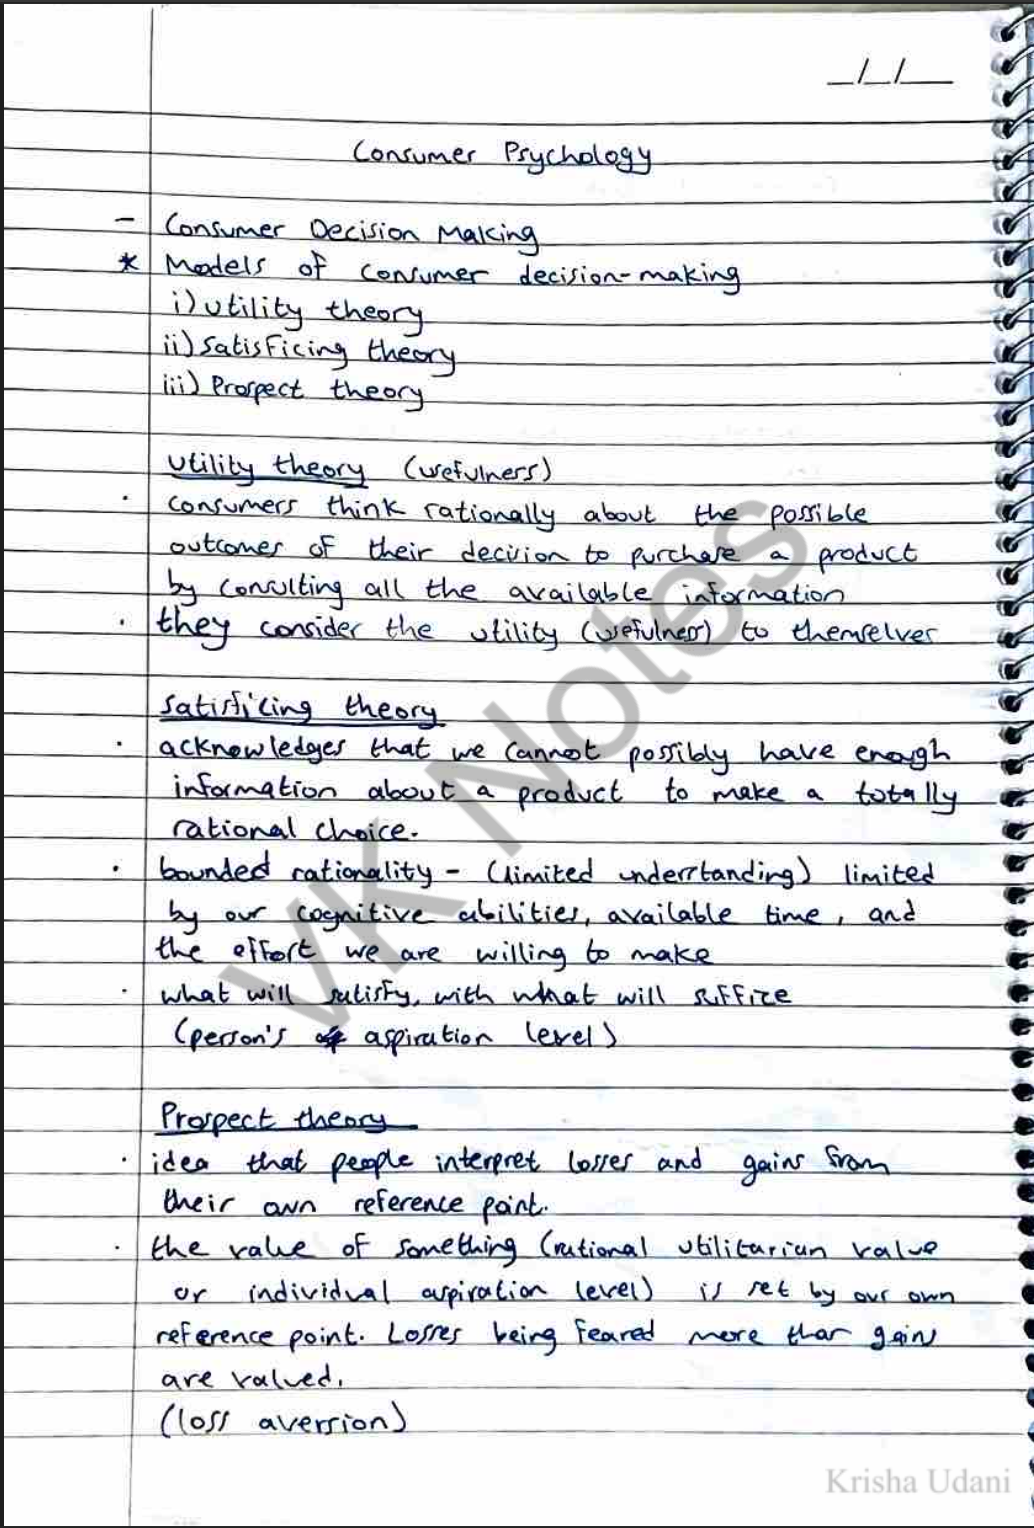 _/_/__
Consumer Psychology
- Consumer Decision Making
* Models of consumer decision-making
i) utility theory
ii) Satisficing theory
iii) Prospect theory
utility theory (usefulness)
· consumers think rationally about the possible
outcomes of their decision to purchase a product
by consulting all the available information
· they consider the utility (usefulness) to themselves
Satisficing theory
· acknowledges that we cannot possibly have enough
information about a product to make a totally
rational choice.
· bounded rationality - (limited understanding) limited
by our cognitive abilities, available time, and
the effort we are willing to make
· what will satisfy, with what will suffice
(person's aspiration level)
Prospect theory
· idea that people interpret losses and gains from
their own reference point.
· the value of something (rational utilitarian value
or individual aspiration level) is set by our own
reference point. Losses being feared more than gains
are valued.
(loss aversion)
VK Notes
Krisha Udani